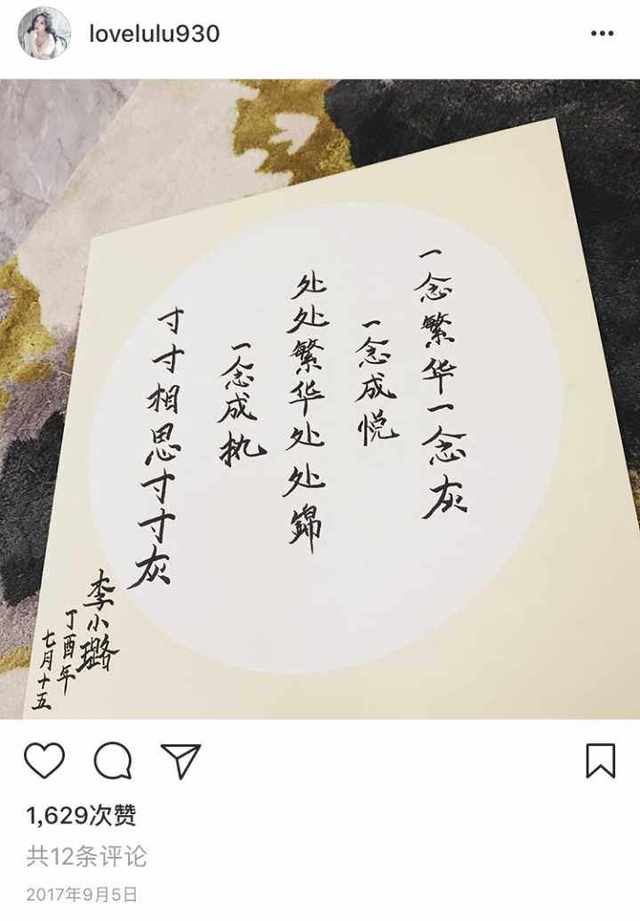 lovelulu930
一念繁华一念灰
一念成悦
处处繁华处处錦
一念成执
寸寸相思寸寸灰
李小璐
丁酉年
七月十五
1,629次赞
共12条评论
2017年9月5日